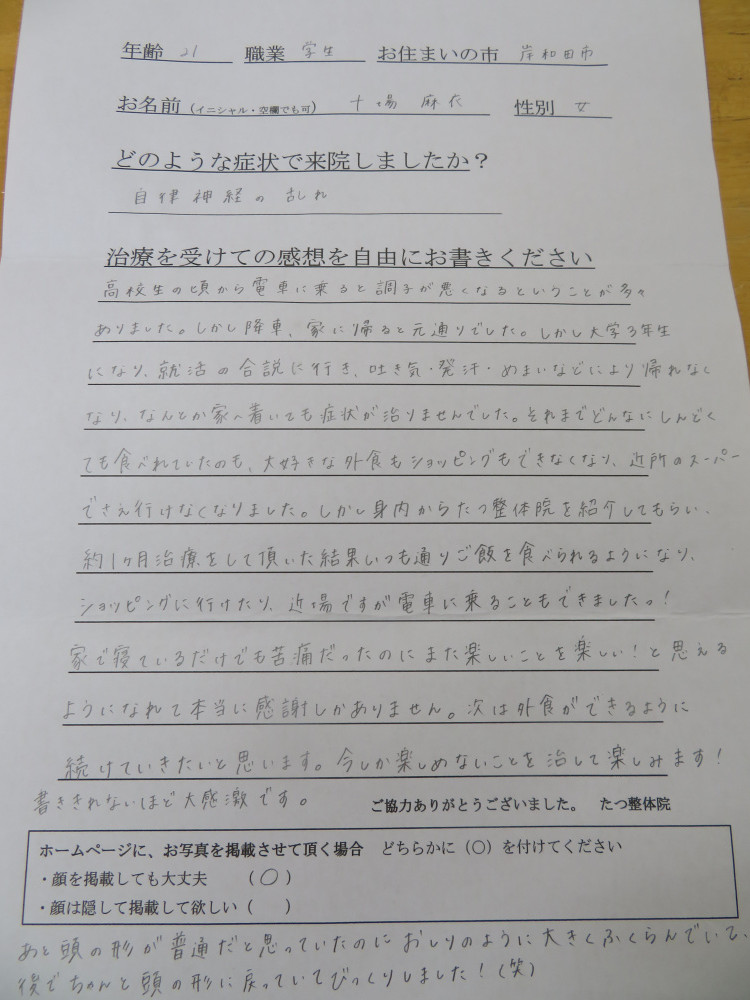 年齢 21 職業 学生 お住まいの市 岸和田市
お名前（イニシャル・空欄でも可） 十場 麻衣 性別 女
どのような症状で来院しましたか？
自律神経の乱れ
治療を受けての感想を自由にお書きください
高校生の頃から電車に乗ると調子が悪くなるということが多々
ありました。しかし降車、家に帰ると元通りでした。しかし大学3年生
になり、就活の合説に行き、吐き気・発汗・めまいなどにより帰れなく
なり、なんとか家へ着いても症状が治りませんでした。それまでどんなにしんどく
ても食べれていたのも、大好きな外食もショッピングもできなくなり、近所のスーパー
でさえ行けなくなりました。しかし身内からたつ整体院を紹介してもらい、
約1ヶ月治療をして頂いた結果いつも通りご飯を食べられるようになり、
ショッピングに行けたり、近場ですが電車に乗ることもできましたっ!
家で寝ているだけでも苦痛だったのにまた楽しいことを楽しい!と思える
ようになれて本当に感謝しかありません。次は外食ができるように
続けていきたいと思います。今しか楽しめないことを治して楽しみます!
書ききれないほど大感激です。
ご協力ありがとうございました。 たつ整体院
ホームページに、お写真を掲載させて頂く場合 どちらかに（〇）を付けてください
・顔を掲載しても大丈夫 （〇）
・顔は隠して掲載して欲しい（ ）
あと頭の形が普通だと思っていたのにおしりのように大きくふくらんでいて、
後でちゃんと頭の形に戻っていてびっくりしました!(笑)